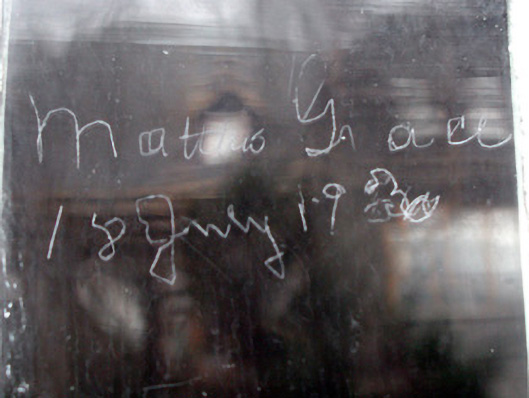 Matthio Grace
18 July 19